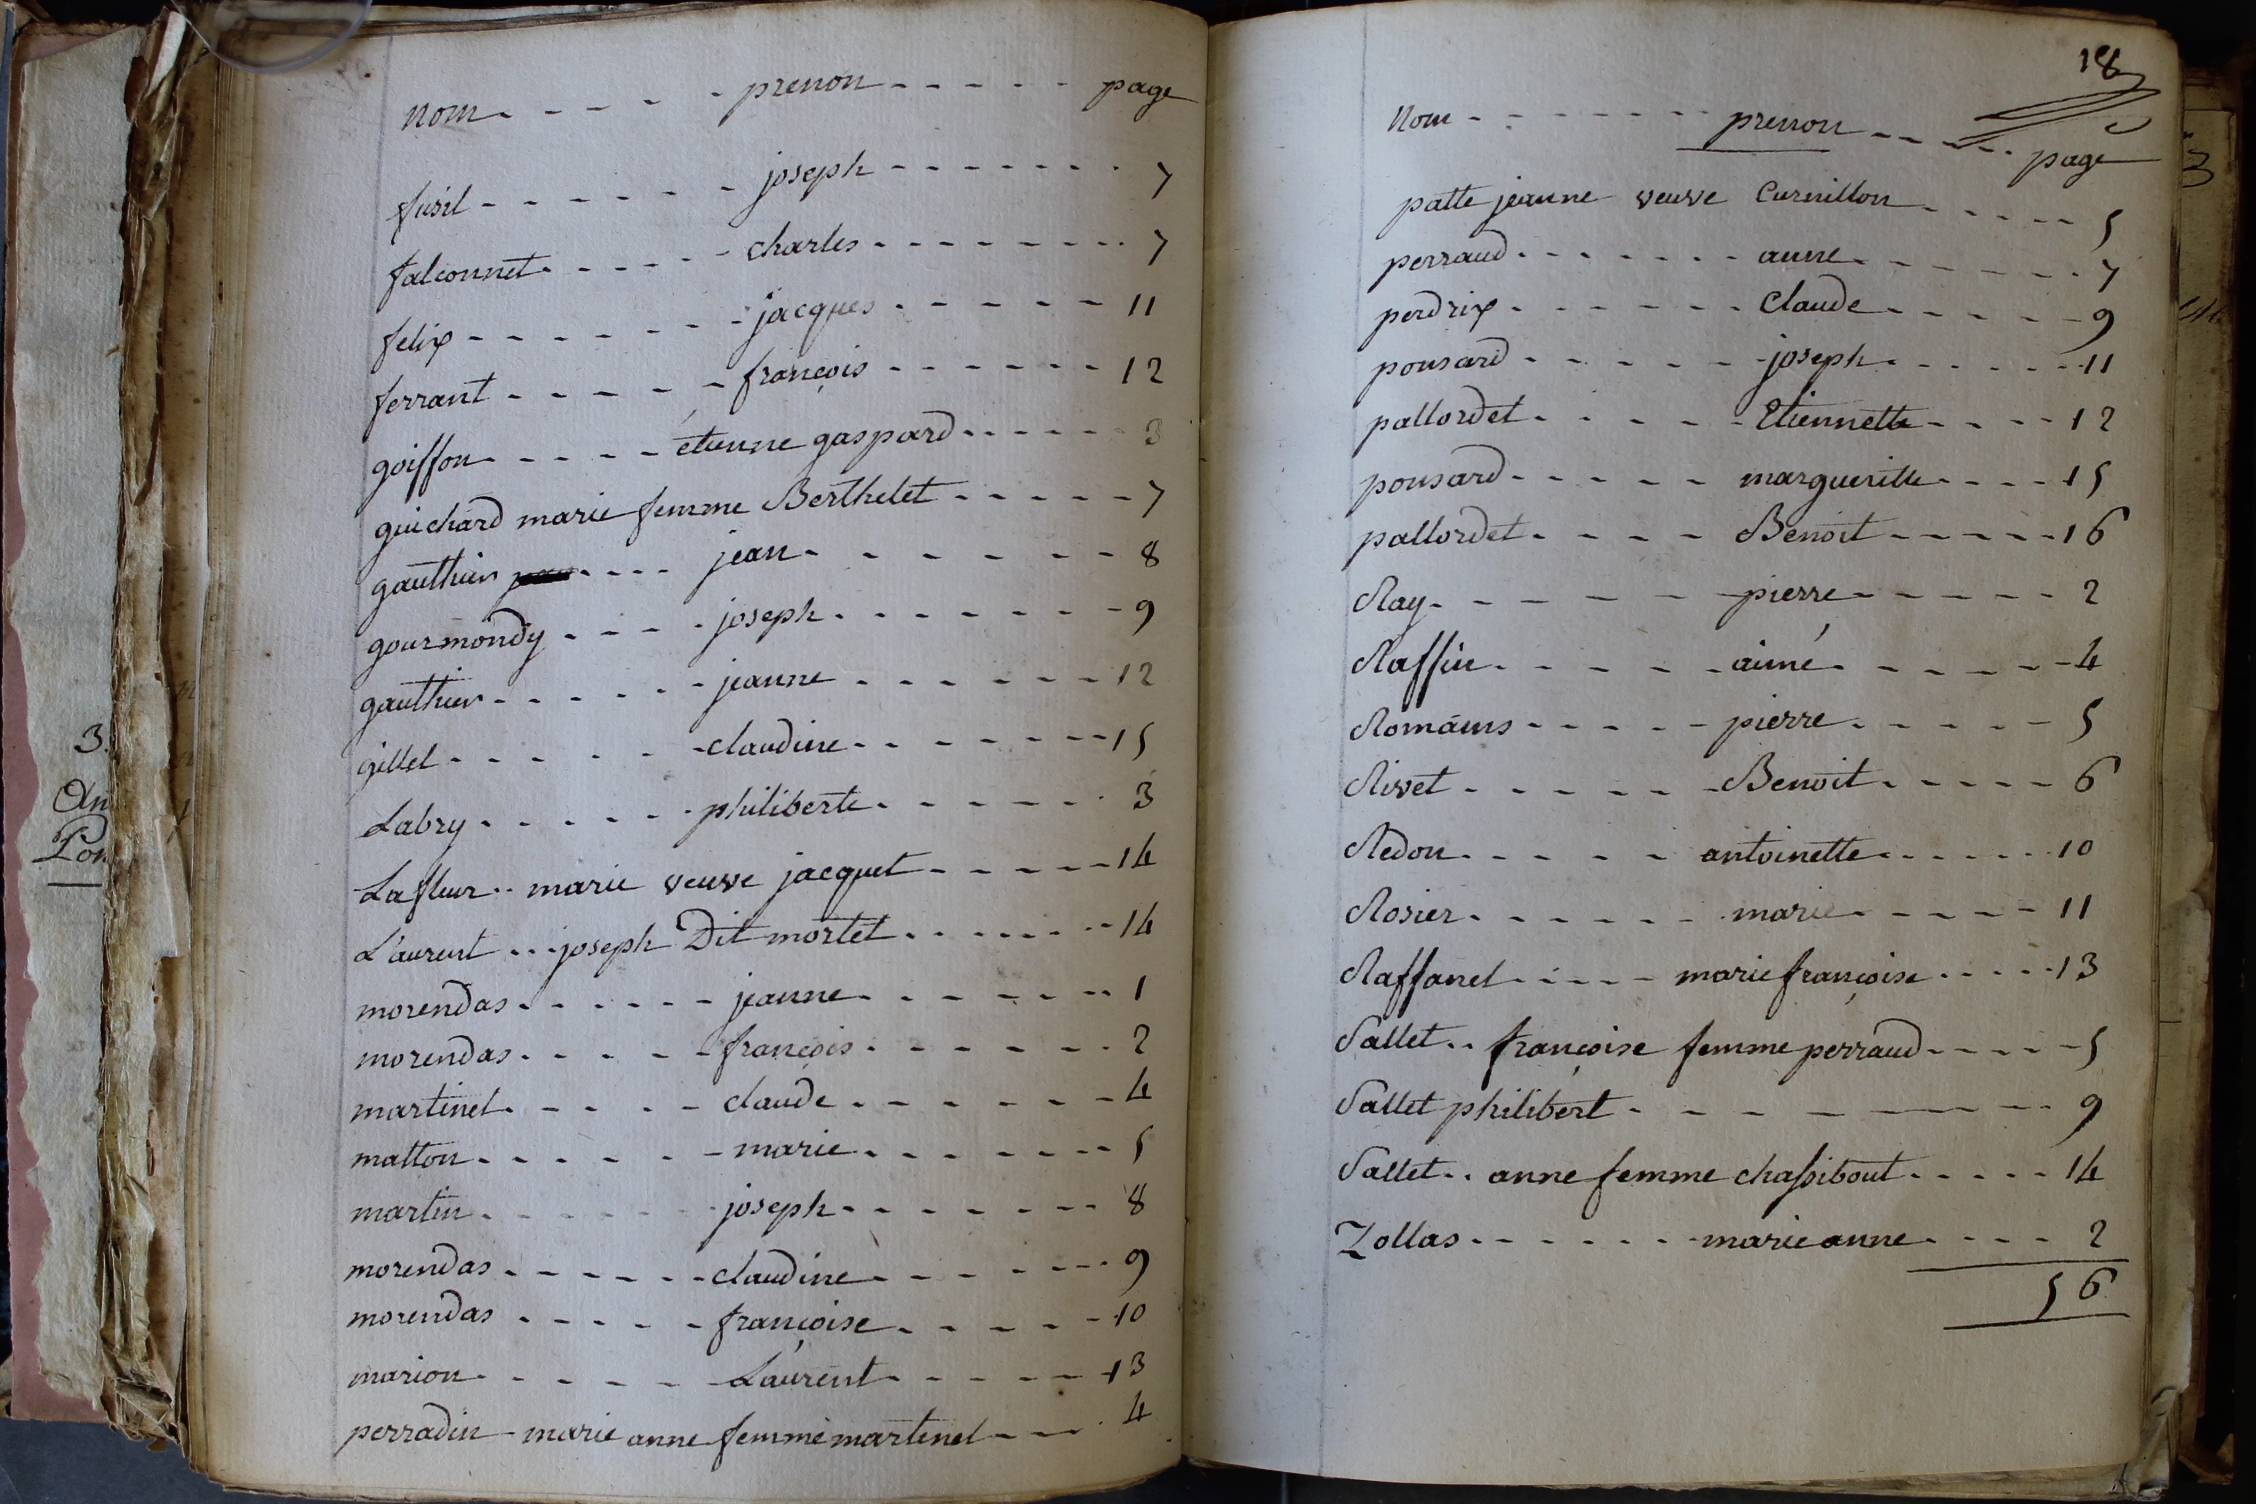 nom - - - - - prenon - - - - - page
fusil - - - - - - joseph - - - - - - - 7
falconnet - - - - - charles - - - - - - - 7
felix - - - - - - - jacques - - - - - 11
ferrant - - - - - françois - - - - - - 12
goiffon - - - - - étienne gaspard - - - - - 3
guichard marie femme Berthelet - - - - - 7
gauthier - - - - jean - - - - - - - 8
gourmondy - - - - joseph - - - - - - - 9
gauthier - - - - - - jeanne - - - - - - 12
gillet - - - - - - claudine - - - - - - - 15
Labry - - - - - - philiberte - - - - - - 3
Lafleur .. marie veuve jacquet - - - - - 14
Laurent ... joseph Dit mortet - - - - - - 14
morendas - - - - - - jeanne - - - - - - - 1
morendas - - - - - françois - - - - - - 2
martinet - - - - - claude - - - - - - - 4
matton - - - - - - marie - - - - - - - 5
martin - - - - - - joseph - - - - - - - 8
morendas - - - - - - claudine - - - - - - 9
morendas - - - - - françoise - - - - - 10
marion - - - - - - Laurent - - - - - 13
perradin - marie anne femme martinet - - - 4
18
Nom - - - - - - - prenon - - - - - page
patte jeanne veuve Curnillon - - - - - 5
perraud - - - - - - - anne - - - - - - - 7
perdrix - - - - - - - Claude - - - - - - 9
ponsard - - - - - - joseph - - - - - - 11
pallordet - - - - - Etiennette - - - - 12
ponsard - - - - - margueritte - - - - 15
pallordet - - - - Benoit - - - - - 16
Ray - - - - - - pierre - - - - - 2
Raffin - - - - - aimé - - - - - - 4
Romains - - - - - pierre - - - - - 5
Rivet - - - - - - Benoit - - - - - 6
Redon - - - - - antoinette - - - - - - 10
Rosier - - - - - - marie - - - - - 11
Raffanel - - - - - marie françoise - - - - - 13
Sallet .. françoise femme perraud - - - - - 5
Sallet philibert - - - - - - - - 9
Sallet .. anne femme chassibout - - - - - 14
Zollas - - - - - - marie anne - - - - 2
56
3.
An
Pon